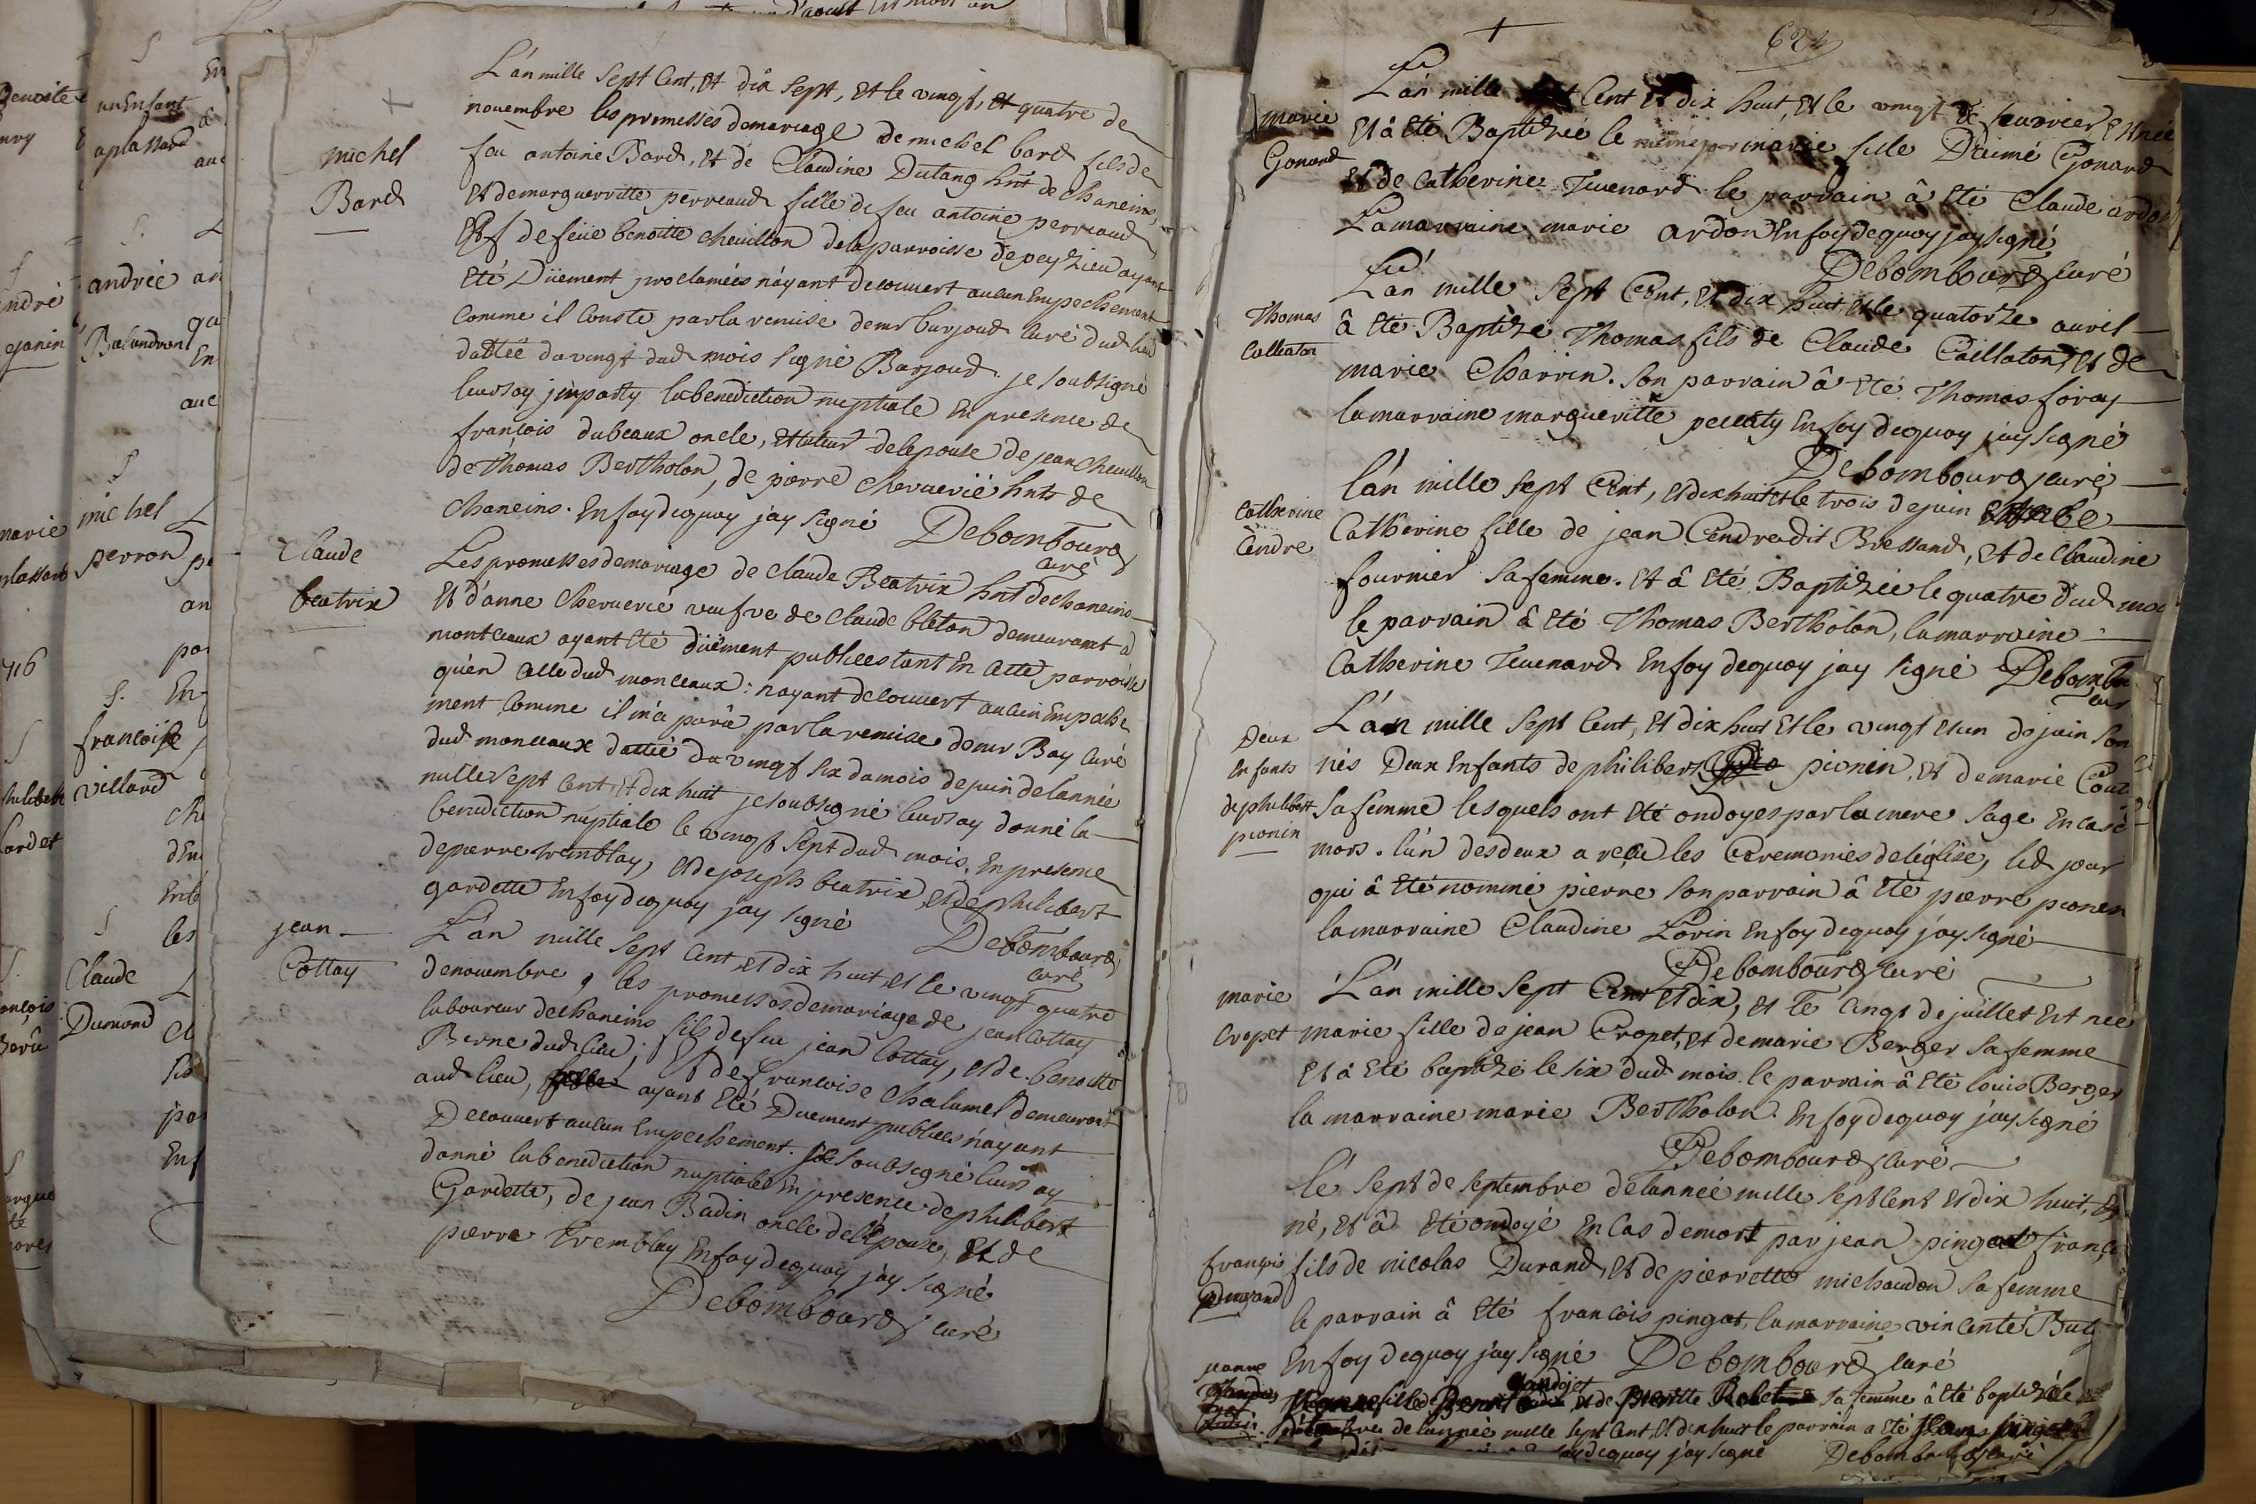 michel
Bard
L'an mille sept cent, et dix sept, et le vingt, et quatre de
novembre les promesses demariage de michel bard fils de
feu antoine Bard, et de Claudine Dutang hnt de chaneins,
et demarguerritte perreaud fille de feu antoine perreaud
et de feüe benoitte cheuillon delaparroisse de peyzieu ayant
eté Düement proclameés n'ayant decouuert aucun Empechement
comme il conste parla remise demr burjoud curé dud lieu
dattéé du vingt dud mois signé Burjoud. je soubsigné
leursay jmparty labenediction nuptiale en presence de
francois dubeaux oncle, et tuteur delepouse de jean cheuillon
de Thomas Bertholon, de pierre cheruerié hnts de
chaneins. Enfoydequoy jay signé Debombourg
curé
claude
beatrix
Les promesses demariage de claude Beatrix hnt dechaneins
Et d'anne cheruerié veufve de claude bleton demeurant a
montceaux ayant eté düëment publiees tant En cette parroisse
qu'en celle dud monceaux: nayant decouuert aucun Empeche
ment comme il m'a parû parla remise demr Bay curé
dud monceaux dattéé du vingt six du mois dejuin delannéé
mille sept cent, et dix huit je soubsigné leursay donné la
benediction nuptiale le vingt sept dud mois, En presence
depierre tremblay, et de joseph beatrix, et de philibert
gardette Enfoydequoy jay signé Debombourg
curé
jean
Cottay
L'an mille sept cent et dix huit et le vingt quatre
denouembre, les promesses demariage de jean Cottay
laboureur dechaneins fils de feu jean Cottay, et de benoitte
Berne dud lieu; Et de francoise chalumel demeurant
aud lieu, ayant eté Duement publiees n'ayant
Decouuert aucun Empechement. je soubsigné leurs ay
donné labenediction nuptiale En presence dephilibert
Gardette, de jean Badin oncle del'epouse, Et de
pierre tremblay Enfoydequoy jay signé
Debombourg curé
624
marie
Gonard
L'an mille sept Cent et dix huit, et le vingt de feuvrier, est née
et à eté Baptizéé le même jour marie fille D'aimé Gonard
et de catherine Teuenard le parrain â eté Claude ardon
Lamarraine marie ardon Enfoydequoy jay signé
Debombourg curé
Thomas
Caillaton
L'an mille sept Cent, et dix huit et le quatorze auril
â eté Baptizé Thomas fils de Claude Caillaton, et de
marie Charrin. son parrain â eté Thomas foray
lamarraine margueritte Enfoydequoy jay signé
Debombourg curé
Catherine
Cendre
l'an mille sept Cent, et dix huit et le trois dejuin
Catherine fille de jean Cendre dit Bressand, et de Claudine
fournier sa femme. et â eté Baptizéé le quatre dud mois
le parrain â eté Thomas Bertholon, lamarraine
Catherine Teuenard Enfoy dequoy jay signé Debombo
cur
Deux
Enfants
dephilibert
pionin
L'an mille sept Cent, et dix huit et le vingt et un dejuin son
nés Deux Enfants de philibert pionin, et demarie Cout
sa femme lesquels ont eté ondoyes par la mere sage En cas de
mors. l'un des deux a reçu les Ceremonies del'eglise, led jour
qui â eté nommé pierre son parrain â eté pierre pionin
lamarraine Claudine Lorin Enfoy dequoy j'ay signé
Debombourg curé
marie
Cropet
L'an mille sept Cent et dix, et le Cinqt de juillet Est née
marie fille de jean Cropet, et demarie Berger sa femme
Et â eté baptizé le six dud mois. le parrain â eté louis Berger
la marraine marie Bertholon. Enfoydequoy j'ay signé
Debombourg curé
françois
Durand
le sept de septembre delannéé mille sept cent et dix huit, Est
né, et â eté ondoyé En Cas de mort par jean pingat franço
fils de nicolas Durand, et de pierrette michaudon sa femme
le parrain â eté francois pingat, lamarraine vincente Bulj
Enfoy dequoy j'ay signé Debombourg curé
jeanne
fille de Benoit et de pierrette sa femme â eté baptizéé le
de l'année mille sept Cent, et dix huit le parrain a eté
dequoy j'ay signé Debombourg curé